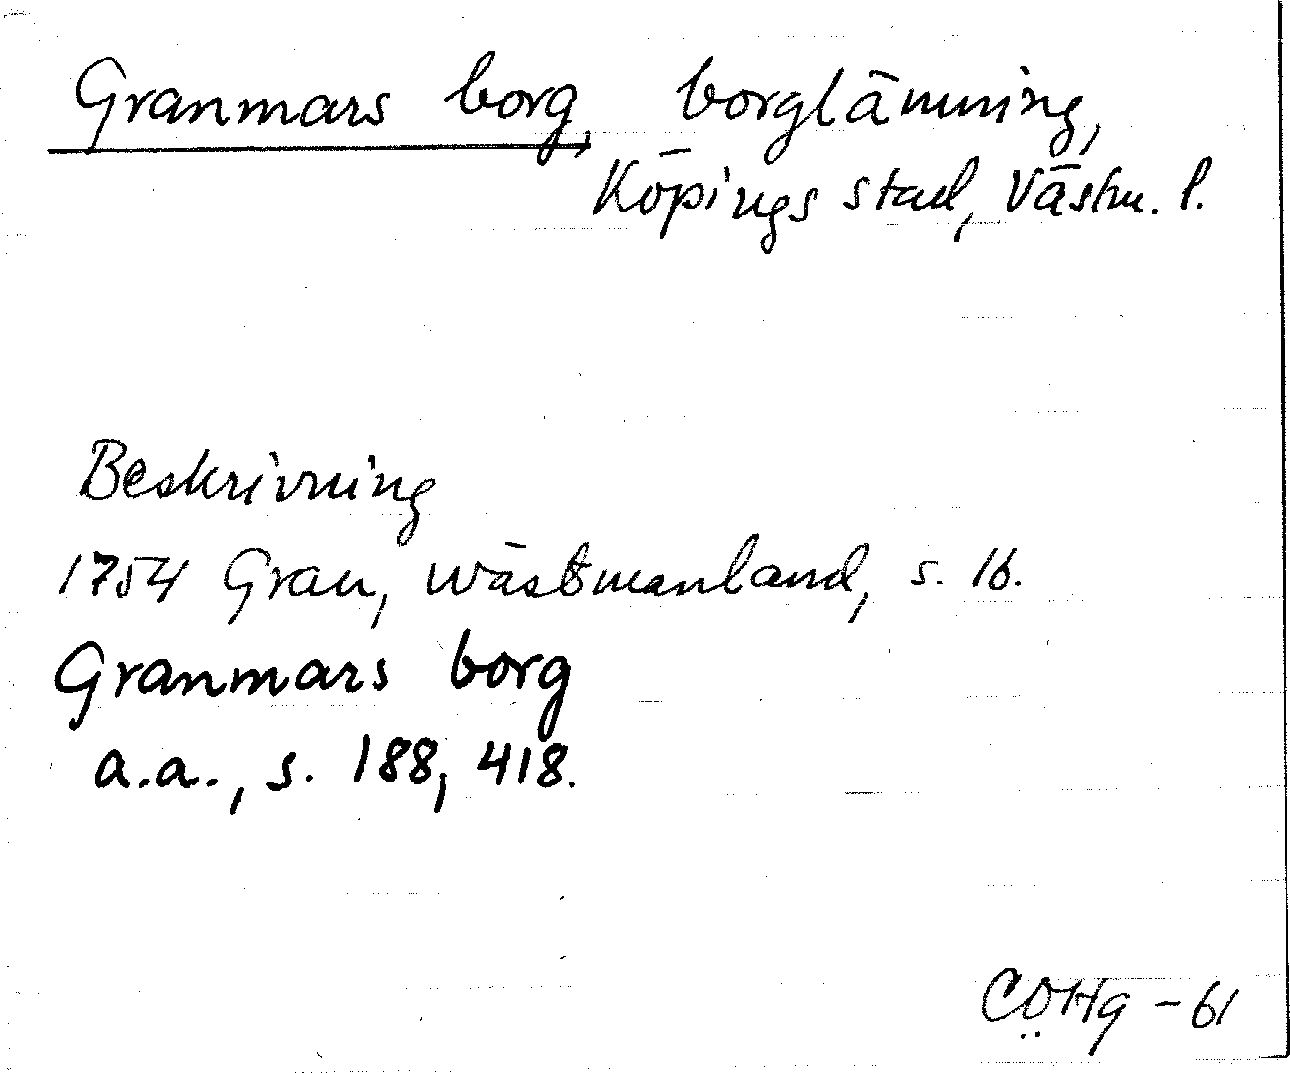 Granmars borg, borglämning,
Köpings stad, Västm. l.
Beskrivning
1754 Grau, Wästmanland, s. 16.
Granmars borg
a.a., s. 188, 418.
CÖHg - 61